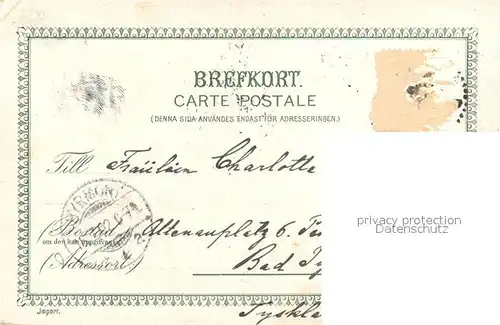 BREFKORT.
CARTE POSTALE
(DENNA SIDA ANVÄNDES ENDAST FÖR ADRESSERINGEN.)
Till Fräulein Charlotte
PYRMONT
(Bostad) Altenauplatz 6.
om den kan uppgifvas
(Adressort.) Bad
Tyskla
Jmport.
privacy protection
Datenschutz